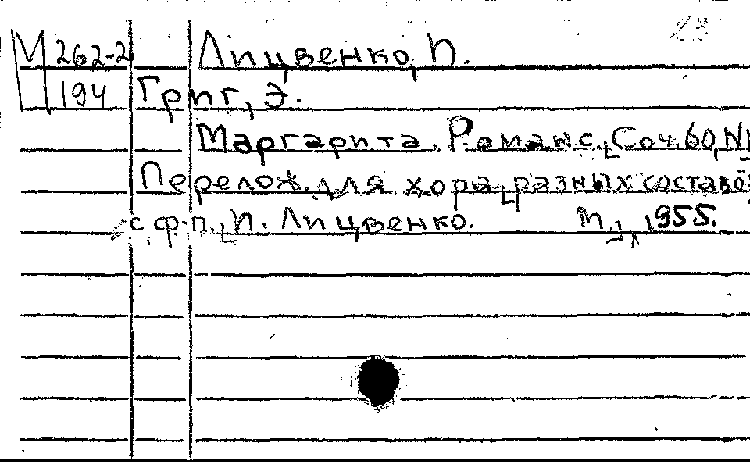 23
М 262-2 Лицвенко, И.
194 Григ, Э.
Маргарита. Романс. Соч. 60, №
Перелож. для хора разных составов
с ф-п. И. Лицвенко. М., 1955.